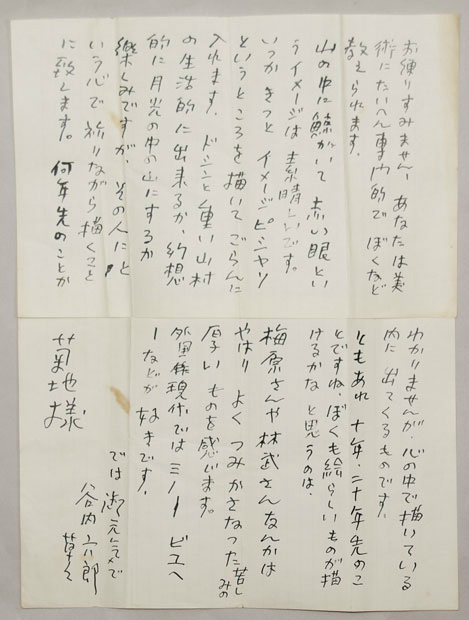 お練りすみません あなたは美
術にたいへん専門的でぼくなど
教えられます。
山の中に鯨がいて 赤い眼とい
うイメージは素晴しいです。
いつかきっと イメージピシャリ
というところを描いてごらんに
入れます。ドシンと重い山村
の生活的に出来るか、幻想
的に月光の中の山にするか
楽しみですが、その人にと
いう心で祈りながら描くこと
に致します。何年先のことか
わかりませんが、心の中で描いている
内に出てくるものです。
ともあれ 十年・二十年先のこ
とですね、ぼくも絵らしいものが描
けるかなと思うのは、
梅原さんや林武さんなんかは
やはり よくつみかさなった苦しみの
厚いものを感じます。
外国係現代ではミノー ビユヘ
ーなどが好きです。
では御元気で
谷内六郎
草々
菊地様